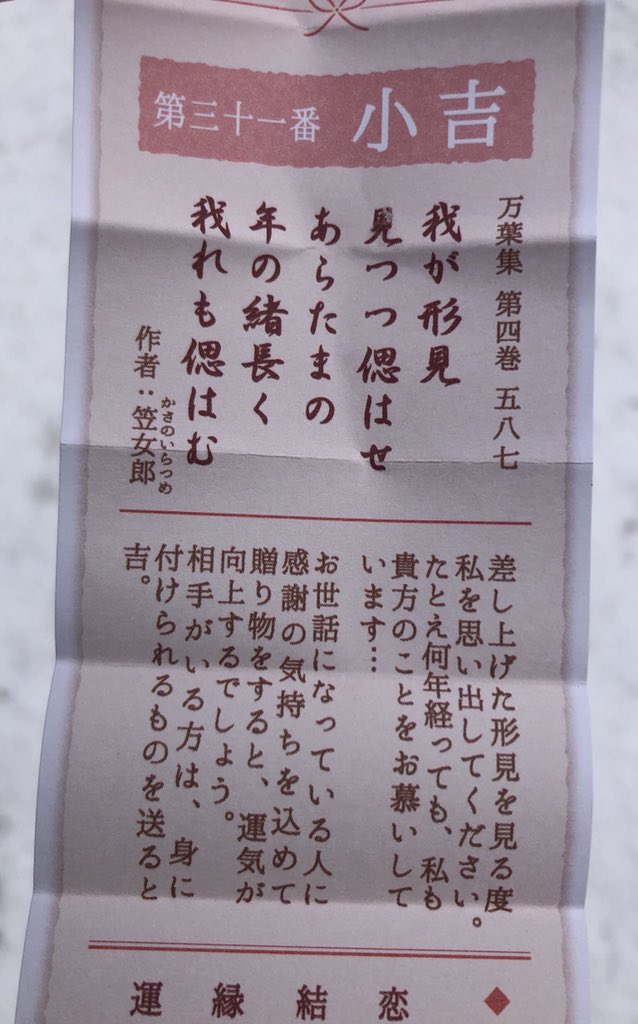 第三十一番 小吉
万葉集 第四巻 五八七
我が形見
見つつ偲はせ
あらたまの
年の緒長く
我れも偲はむ
作者：笠女郎
かさのいらつめ
差し上げた形見を見る度
私を思い出してください。
たとえ何年経っても、私も
貴方のことをお慕いして
います…
お世話になっている人に
感謝の気持ちを込めて
贈り物をすると、運気が
向上するでしょう。
相手がいる方は、身に
付けられるものを送ると
吉。
◆恋結縁運